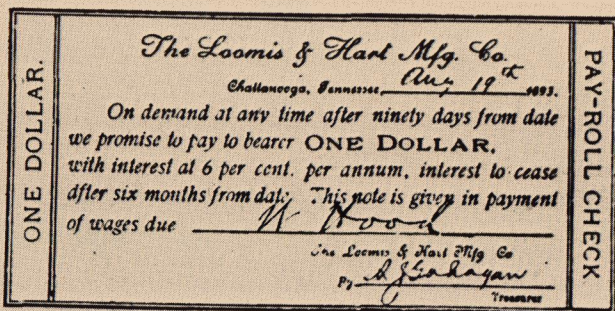 The Loomis & Hart Mfg. Co.
Chattanooga, Tennessee, Aug 19th 1893.
On demand at any time after ninety days from date
we promise to pay to bearer ONE DOLLAR,
with interest at 6 per cent. per annum, interest to cease
after six months from date. This note is given in payment
of wages due W Hood
The Loomis & Hart Mfg Co
Py
Treasurer
ONE DOLLAR.
PAY-ROLL CHECK